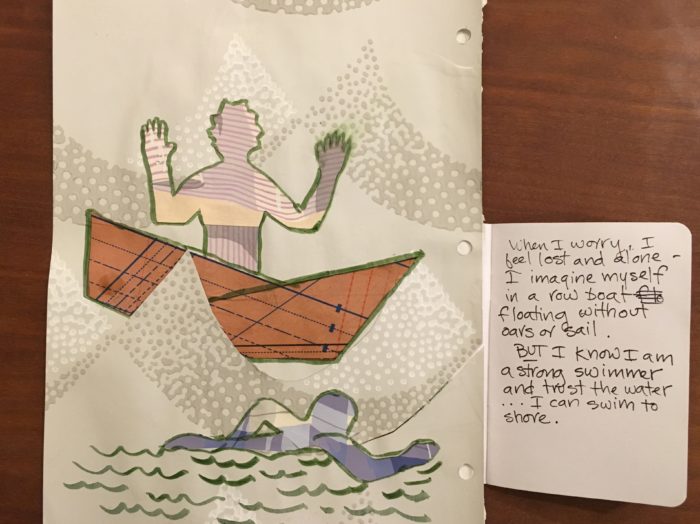 When I worry, I
feel lost and alone -
I imagine myself
in a row boat
floating without
oars or sail.
BUT I know I am
a strong swimmer
and trust the water
... I can swim to
shore.